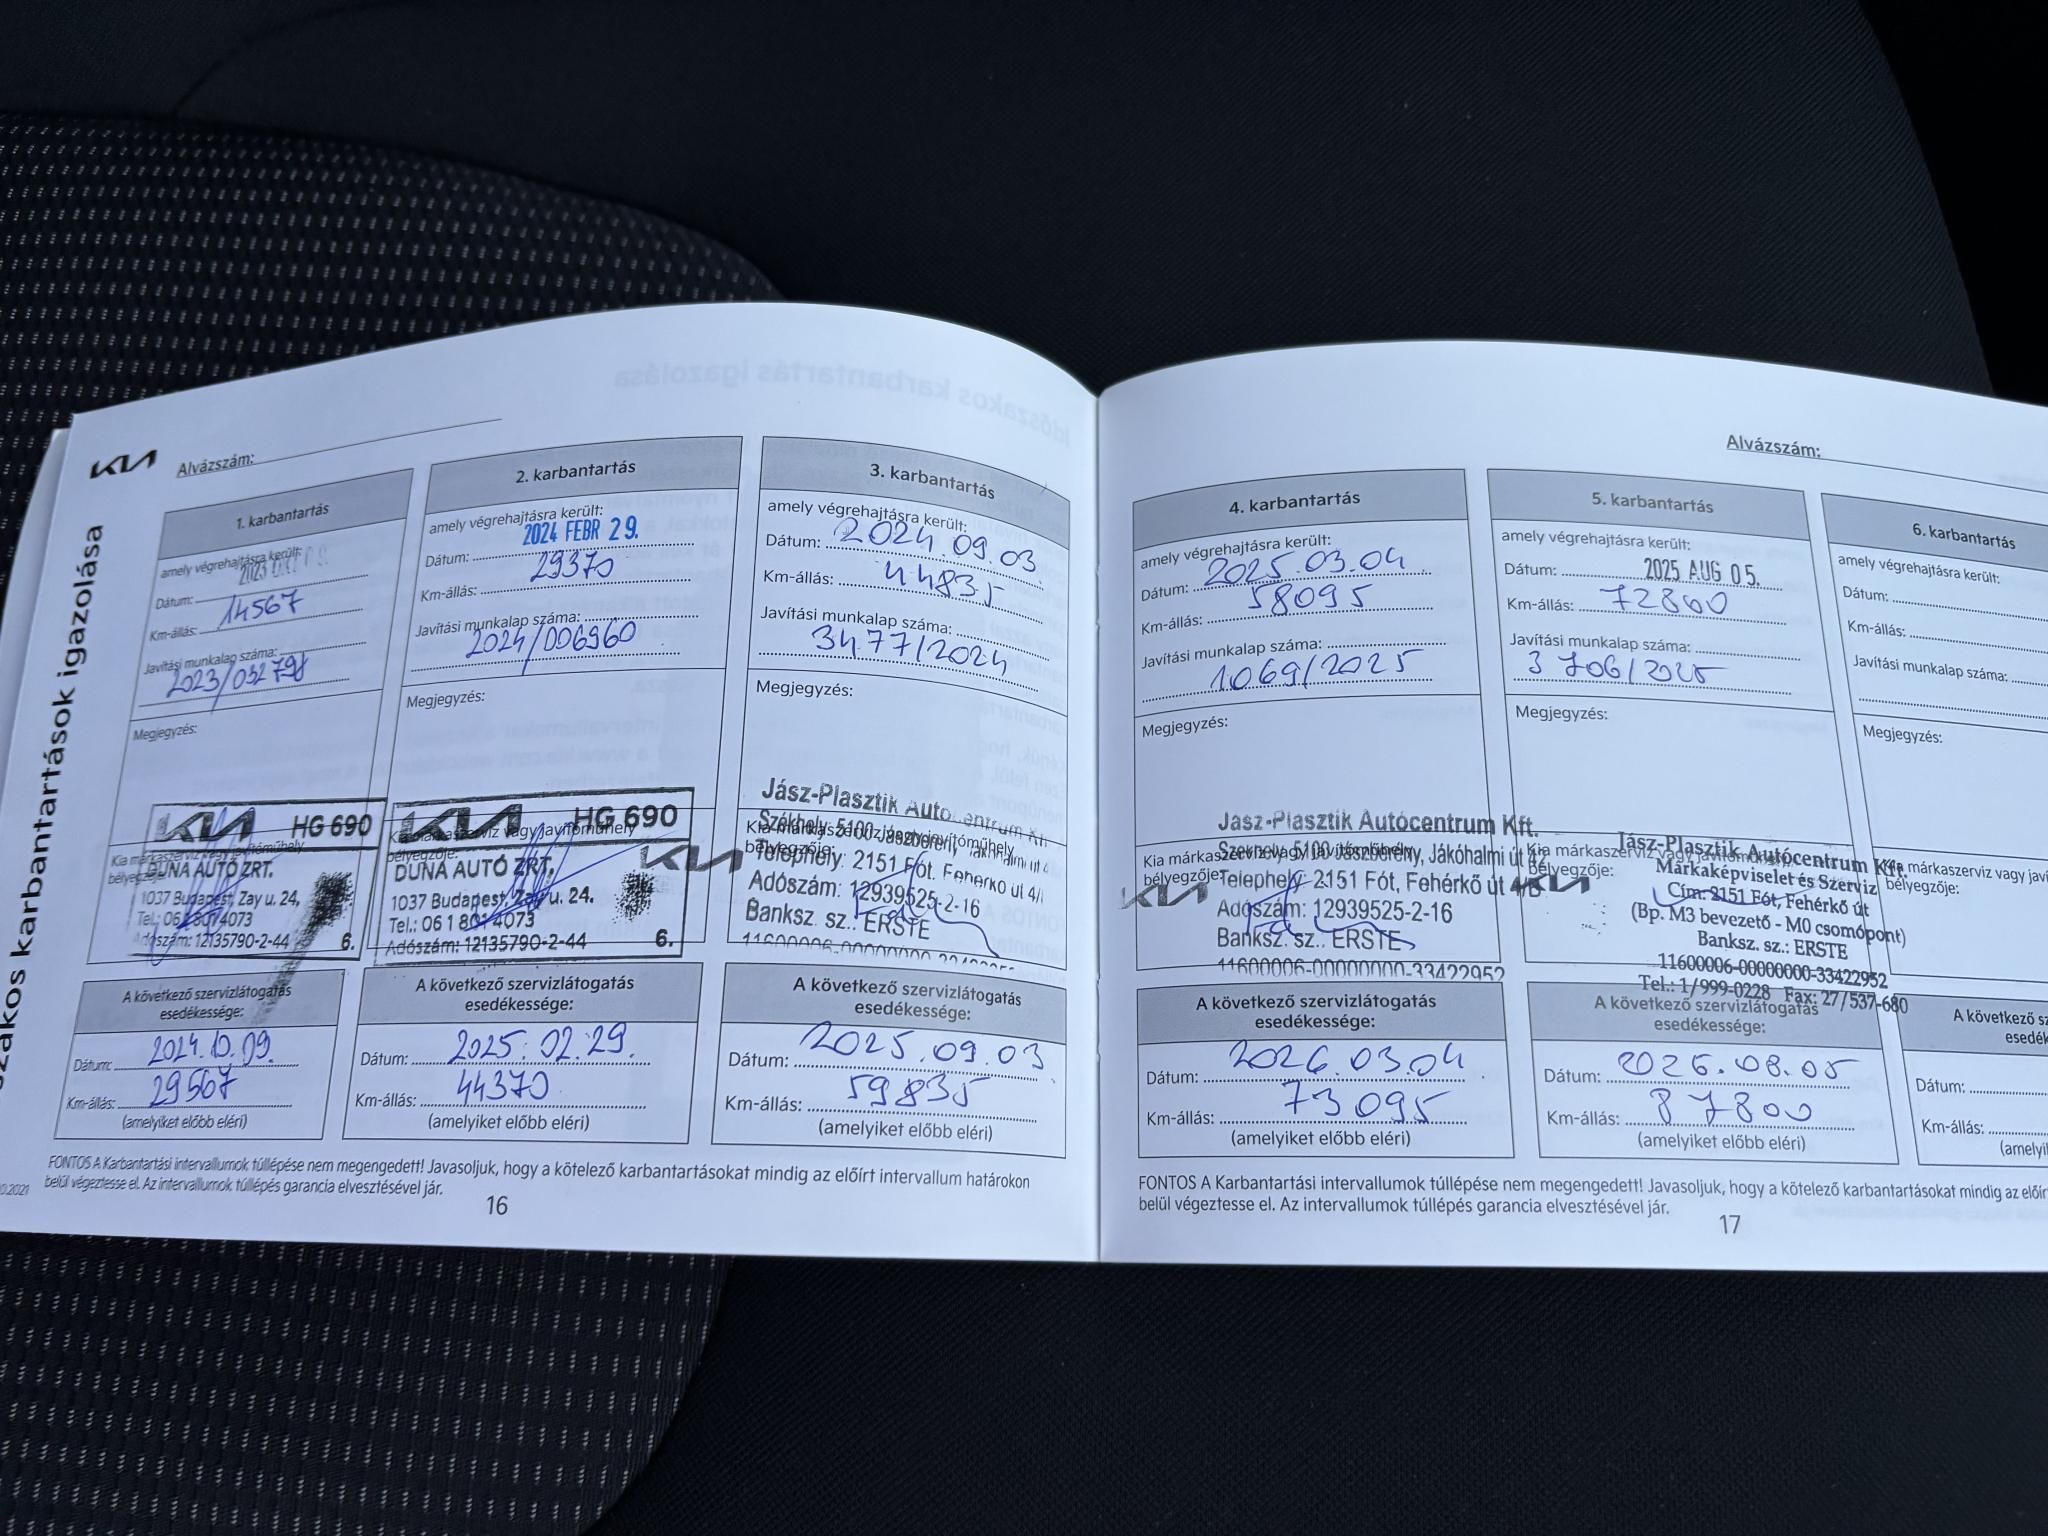 Időszakos karbantartás igazolása
szakos karbantartások igazolása
KIA
Alvázszám:
1. karbantartás
amely végrehajtásra került:
Dátum:
Km-állás: 14567
Javítási munkalap száma:
Megjegyzés:
KIA HG 690
Kia márkaszerviz vagy javítóműhely
bélyegzője:
DUNA AUTÓ ZRT.
1037 Budapest, Zay u. 24.
Tel.: 06 1 801 4073
Adószám: 12135790-2-44 6.
A következő szervizlátogatás
esedékessége:
Dátum: 2024.10.09.
Km-állás: 29567
(amelyiket előbb eléri)
2. karbantartás
amely végrehajtásra került:
Dátum: 2024 FEBR 29.
Km-állás: 29370
Javítási munkalap száma:
2024/006960
Megjegyzés:
KIA HG 690
Kia márkaszerviz vagy javítóműhely
bélyegzője:
DUNA AUTÓ ZRT.
1037 Budapest, Zay u. 24.
Tel.: 06 1 801 4073
Adószám: 12135790-2-44 6.
A következő szervizlátogatás
esedékessége:
Dátum: 2025.02.29.
Km-állás: 44370
(amelyiket előbb eléri)
3. karbantartás
amely végrehajtásra került:
Dátum: 2024.09.03.
Km-állás: 44835
Javítási munkalap száma:
3477/2024
Megjegyzés:
Jász-Plasztik Autócentrum Kft.
Székhely: 5100 Jászberény, Jákóhalmi út 4
Kia márkaszerviz vagy javítóműhely
bélyegzője:
KIA
Telephely: 2151 Fót, Fehérkő út 4/
Adószám: 12939525-2-16
Banksz. sz.: ERSTE
A következő szervizlátogatás
esedékessége:
Dátum: 2025.09.03
Km-állás: 59835
(amelyiket előbb eléri)
FONTOS A Karbantartási intervallumok túllépése nem megengedett! Javasoljuk, hogy a kötelező karbantartásokat mindig az előírt intervallum határokon
belül végeztesse el. Az intervallumok túllépés garancia elvesztésével jár.
16
Alvázszám:
4. karbantartás
amely végrehajtásra került:
Dátum: 2025.03.04
Km-állás: 58095
Javítási munkalap száma:
1069/2025
Megjegyzés:
Jász-Plasztik Autócentrum Kft.
Székhely: 5100 Jászberény, Jákóhalmi út 4/
Kia márkaszerviz vagy javítóműhely
bélyegzője:
KIA
Telephely: 2151 Fót, Fehérkő út 4/B
Adószám: 12939525-2-16
Banksz. sz.: ERSTE
11600006-00000000-33422952
A következő szervizlátogatás
esedékessége:
Dátum: 2026.03.04
Km-állás: 73095
(amelyiket előbb eléri)
5. karbantartás
amely végrehajtásra került:
Dátum: 2025 AUG 05.
Km-állás: 72800
Javítási munkalap száma:
3706/2025
Megjegyzés:
Kia márkaszerviz vagy javítóműhely
bélyegzője:
KIA
Jász-Plasztik Autócentrum Kft.
Márkaképviselet és Szerviz
Cím: 2151 Fót, Fehérkő út
(Bp. M3 bevezető - M0 csomópont)
Banksz. sz.: ERSTE
11600006-00000000-33422952
Tel.: 1/999-0228 Fax: 27/537-680
A következő szervizlátogatás
esedékessége:
Dátum: 2026.08.05
Km-állás: 87800
(amelyiket előbb eléri)
6. karbantartás
amely végrehajtásra került:
Dátum:
Km-állás:
Javítási munkalap száma:
Megjegyzés:
Kia márkaszerviz vagy javí
bélyegzője:
A következő sz
esedék
Dátum:
Km-állás:
(amelyi
FONTOS A Karbantartási intervallumok túllépése nem megengedett! Javasoljuk, hogy a kötelező karbantartásokat mindig az előír
belül végeztesse el. Az intervallumok túllépés garancia elvesztésével jár.
17